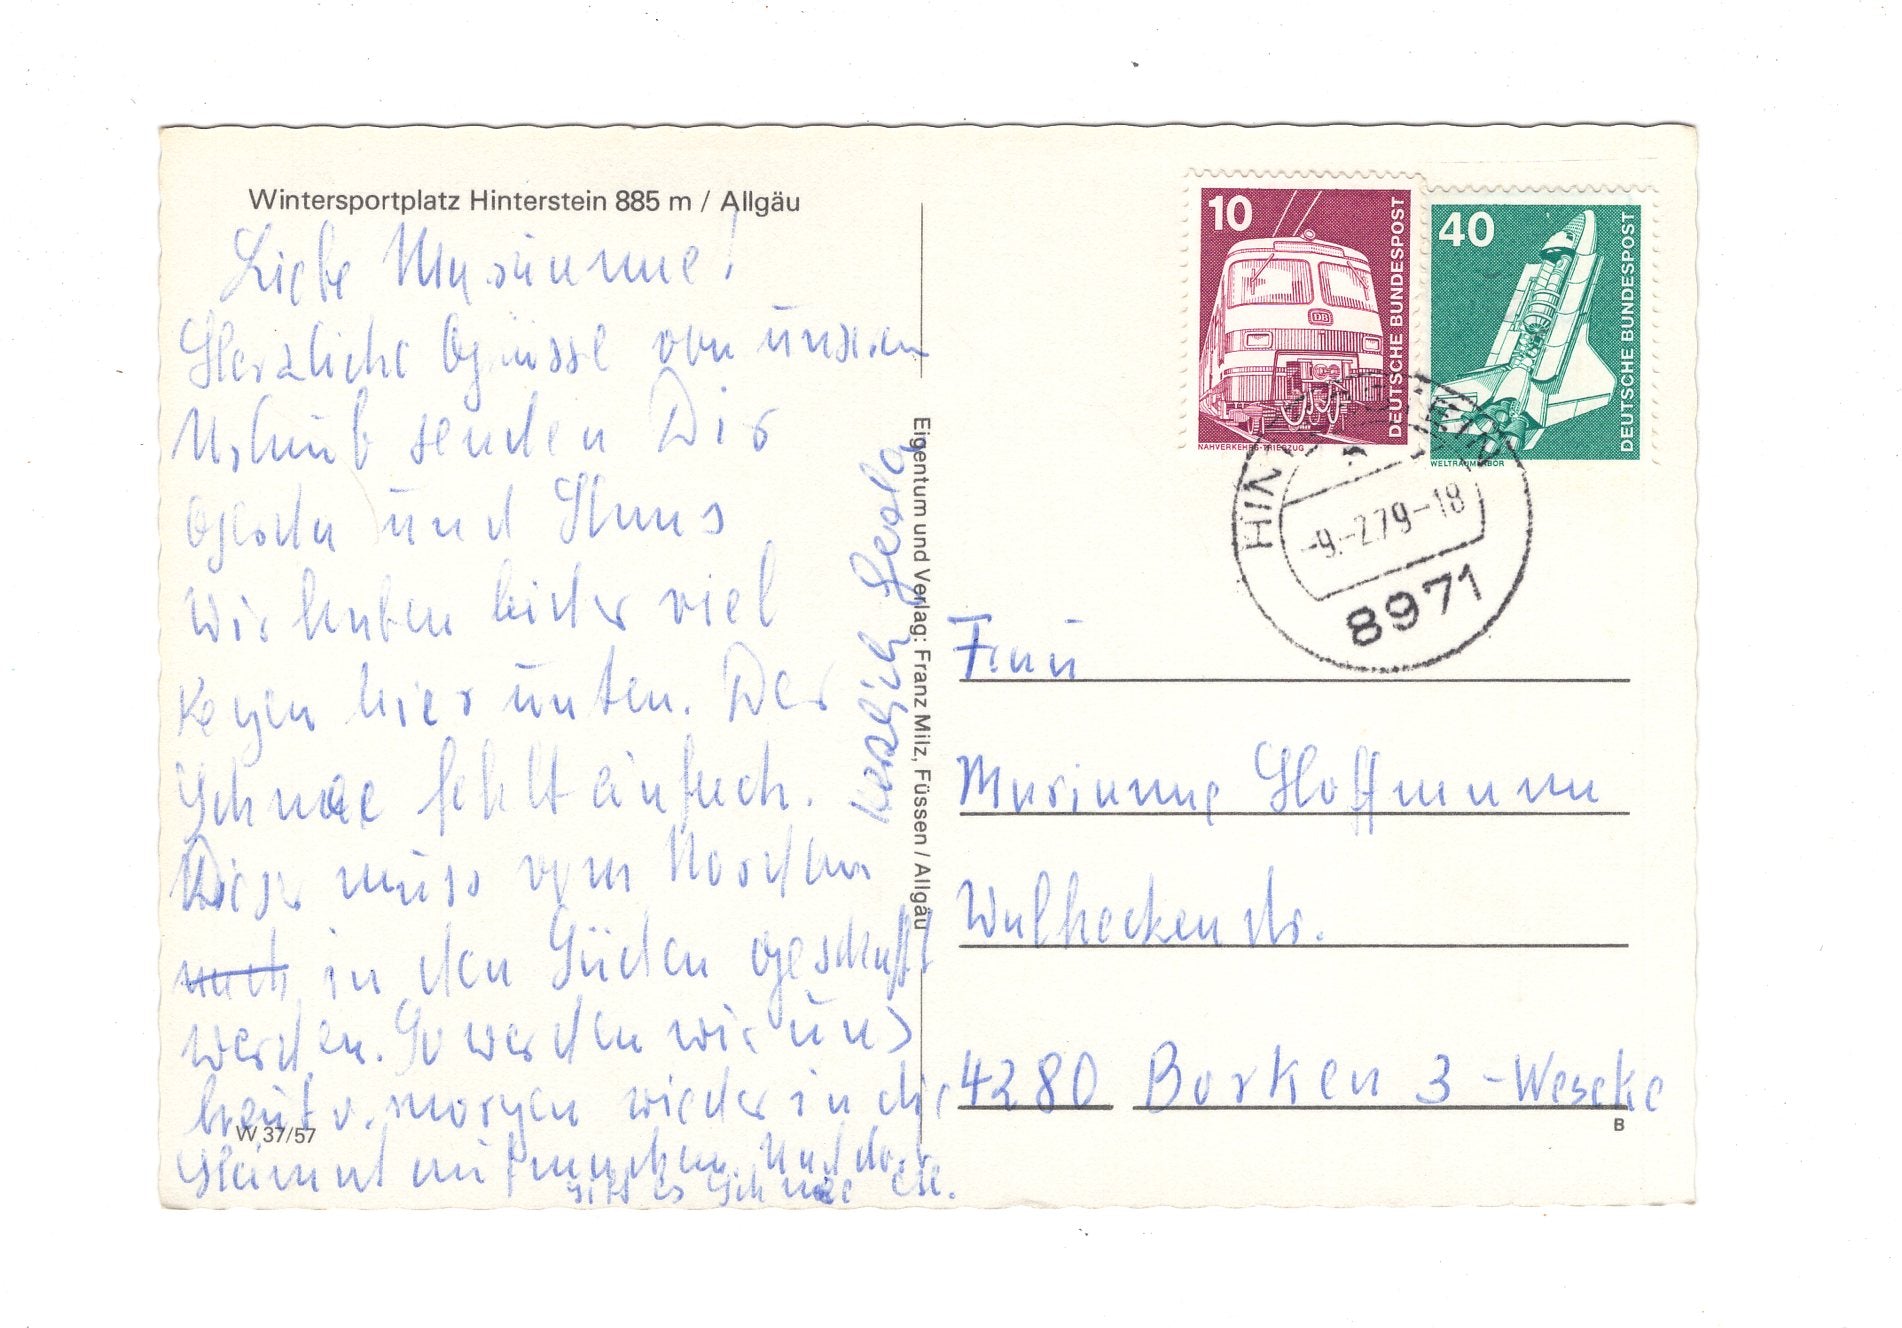 Wintersportplatz Hinterstein 885 m / Allgäu
Liebe Marianne!
Herzliche Grüsse von unserem
Urlaub senden Dir
Gerda und Hans
Wir haben leider viel
Regen hier unten. Der
Schnee fehlt einfach.
Dieser muss vom Norden
nach in den Süden geschafft
werden. So werden wir uns
heut u. morgen wieder in die
Heimat aufmachen. Und da
gibt es Schnee etc.
W 37/57
Herzlich Gerda
Eigentum und Verlag: Franz Milz, Füssen / Allgäu
10
DEUTSCHE BUNDESPOST
NAHVERKEHRS-TRIEBZUG
DB
40
DEUTSCHE BUNDESPOST
WELTRAUMLABOR
-9.-2.79-18
8971
Frau
Marianne Hoffmann
4280 Borken 3 - Weseke
B